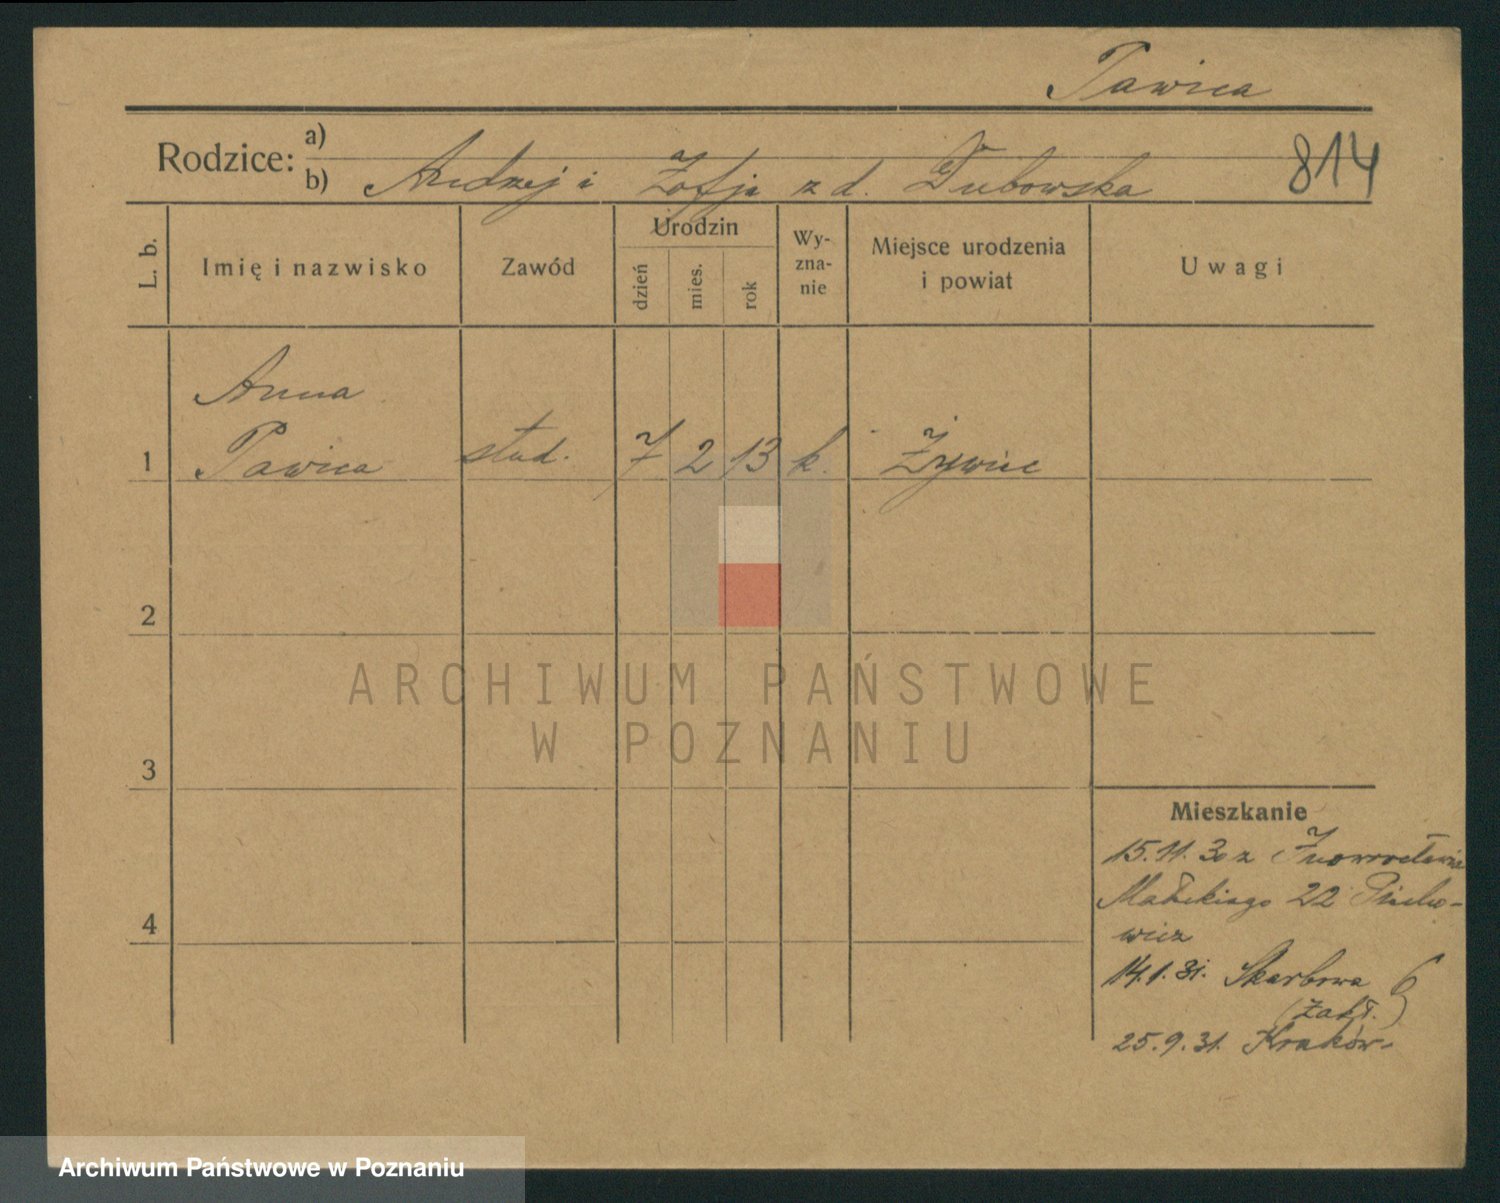 Pawica
Rodzice: a)
b) Andrzej i Zofja z d. Dubowska
814
L. b. Imię i nazwisko Zawód Urodzin dzień mies. rok Wy-zna-nie Miejsce urodzenia i powiat Uwagi
Anna
1 Pawica stud. 7 2 13 k. Żywiec
2
ARCHIWUM PAŃSTWOWE
W POZNANIU
3
Mieszkanie
15.11.30 z Inowrocławia
Małeckiego 22
4
14.1.31. Skarbowa 6
(Zakł.)
25.9.31. Kraków-
Archiwum Państwowe w Poznaniu